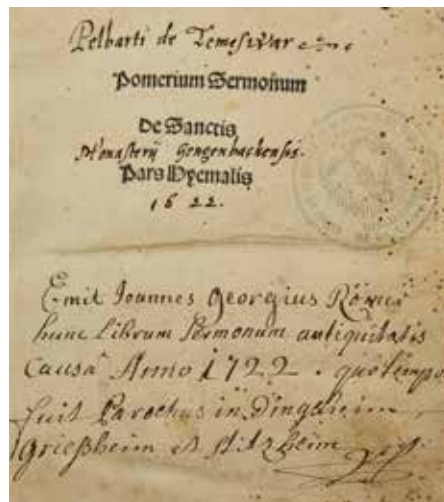 Pelbarti de Temeswar
Pomerium Sermonum
De Sanctis
Monasterij Gengenbachensis.
Pars Hyemalis
1622.
Emit Joannes Georgius
hunc librum sermonum antiquitatis
causâ Anno 1722. quo tempore
fuit Parochus in Dingsheim,
Griesheim et Stitzheim